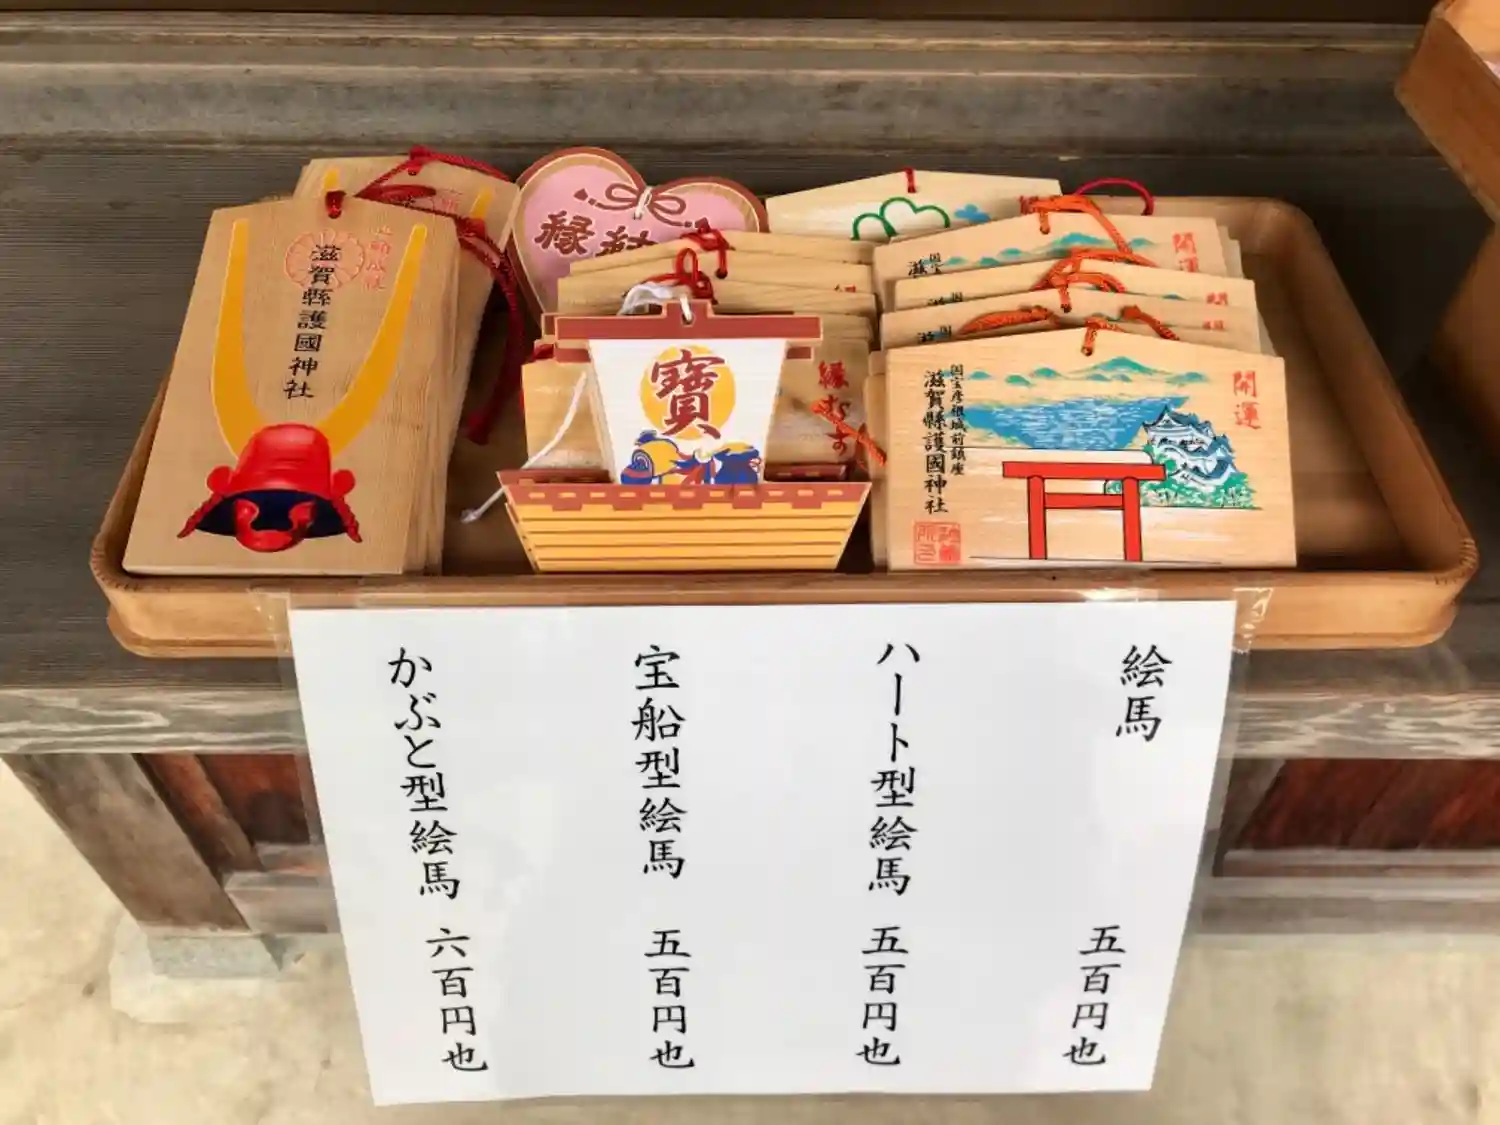 滋賀縣護國神社
縁結
寶
縁むす
開運
開運
国宝彦根城前鎮座
滋賀縣護國神社
絵馬 五百円也
ハート型絵馬 五百円也
宝船型絵馬 五百円也
かぶと型絵馬 六百円也